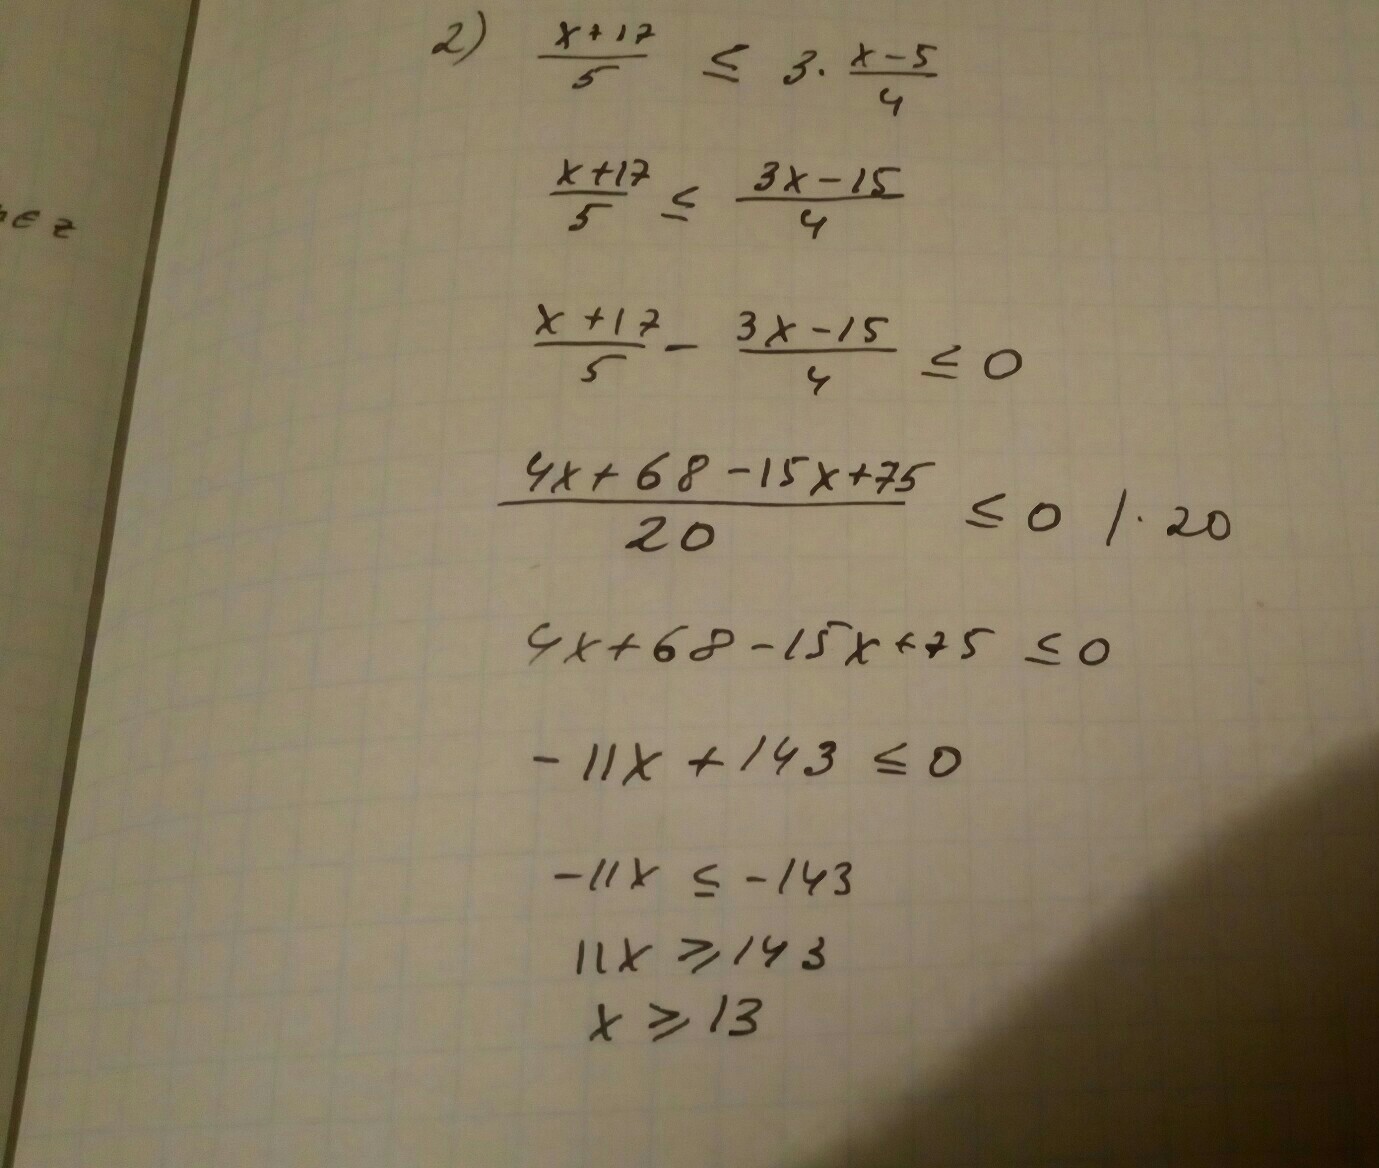 2) x+17/5 ≤ 3· x-5/4
x+17/5 ≤ 3x-15/4
∈ z
x+17/5 - 3x-15/4 ≤ 0
4x+68-15x+75/20 ≤ 0 /· 20
4x+68-15x+75 ≤ 0
-11x+143 ≤ 0
-11x ≤ -143
11x ⩾ 143
x ⩾ 13